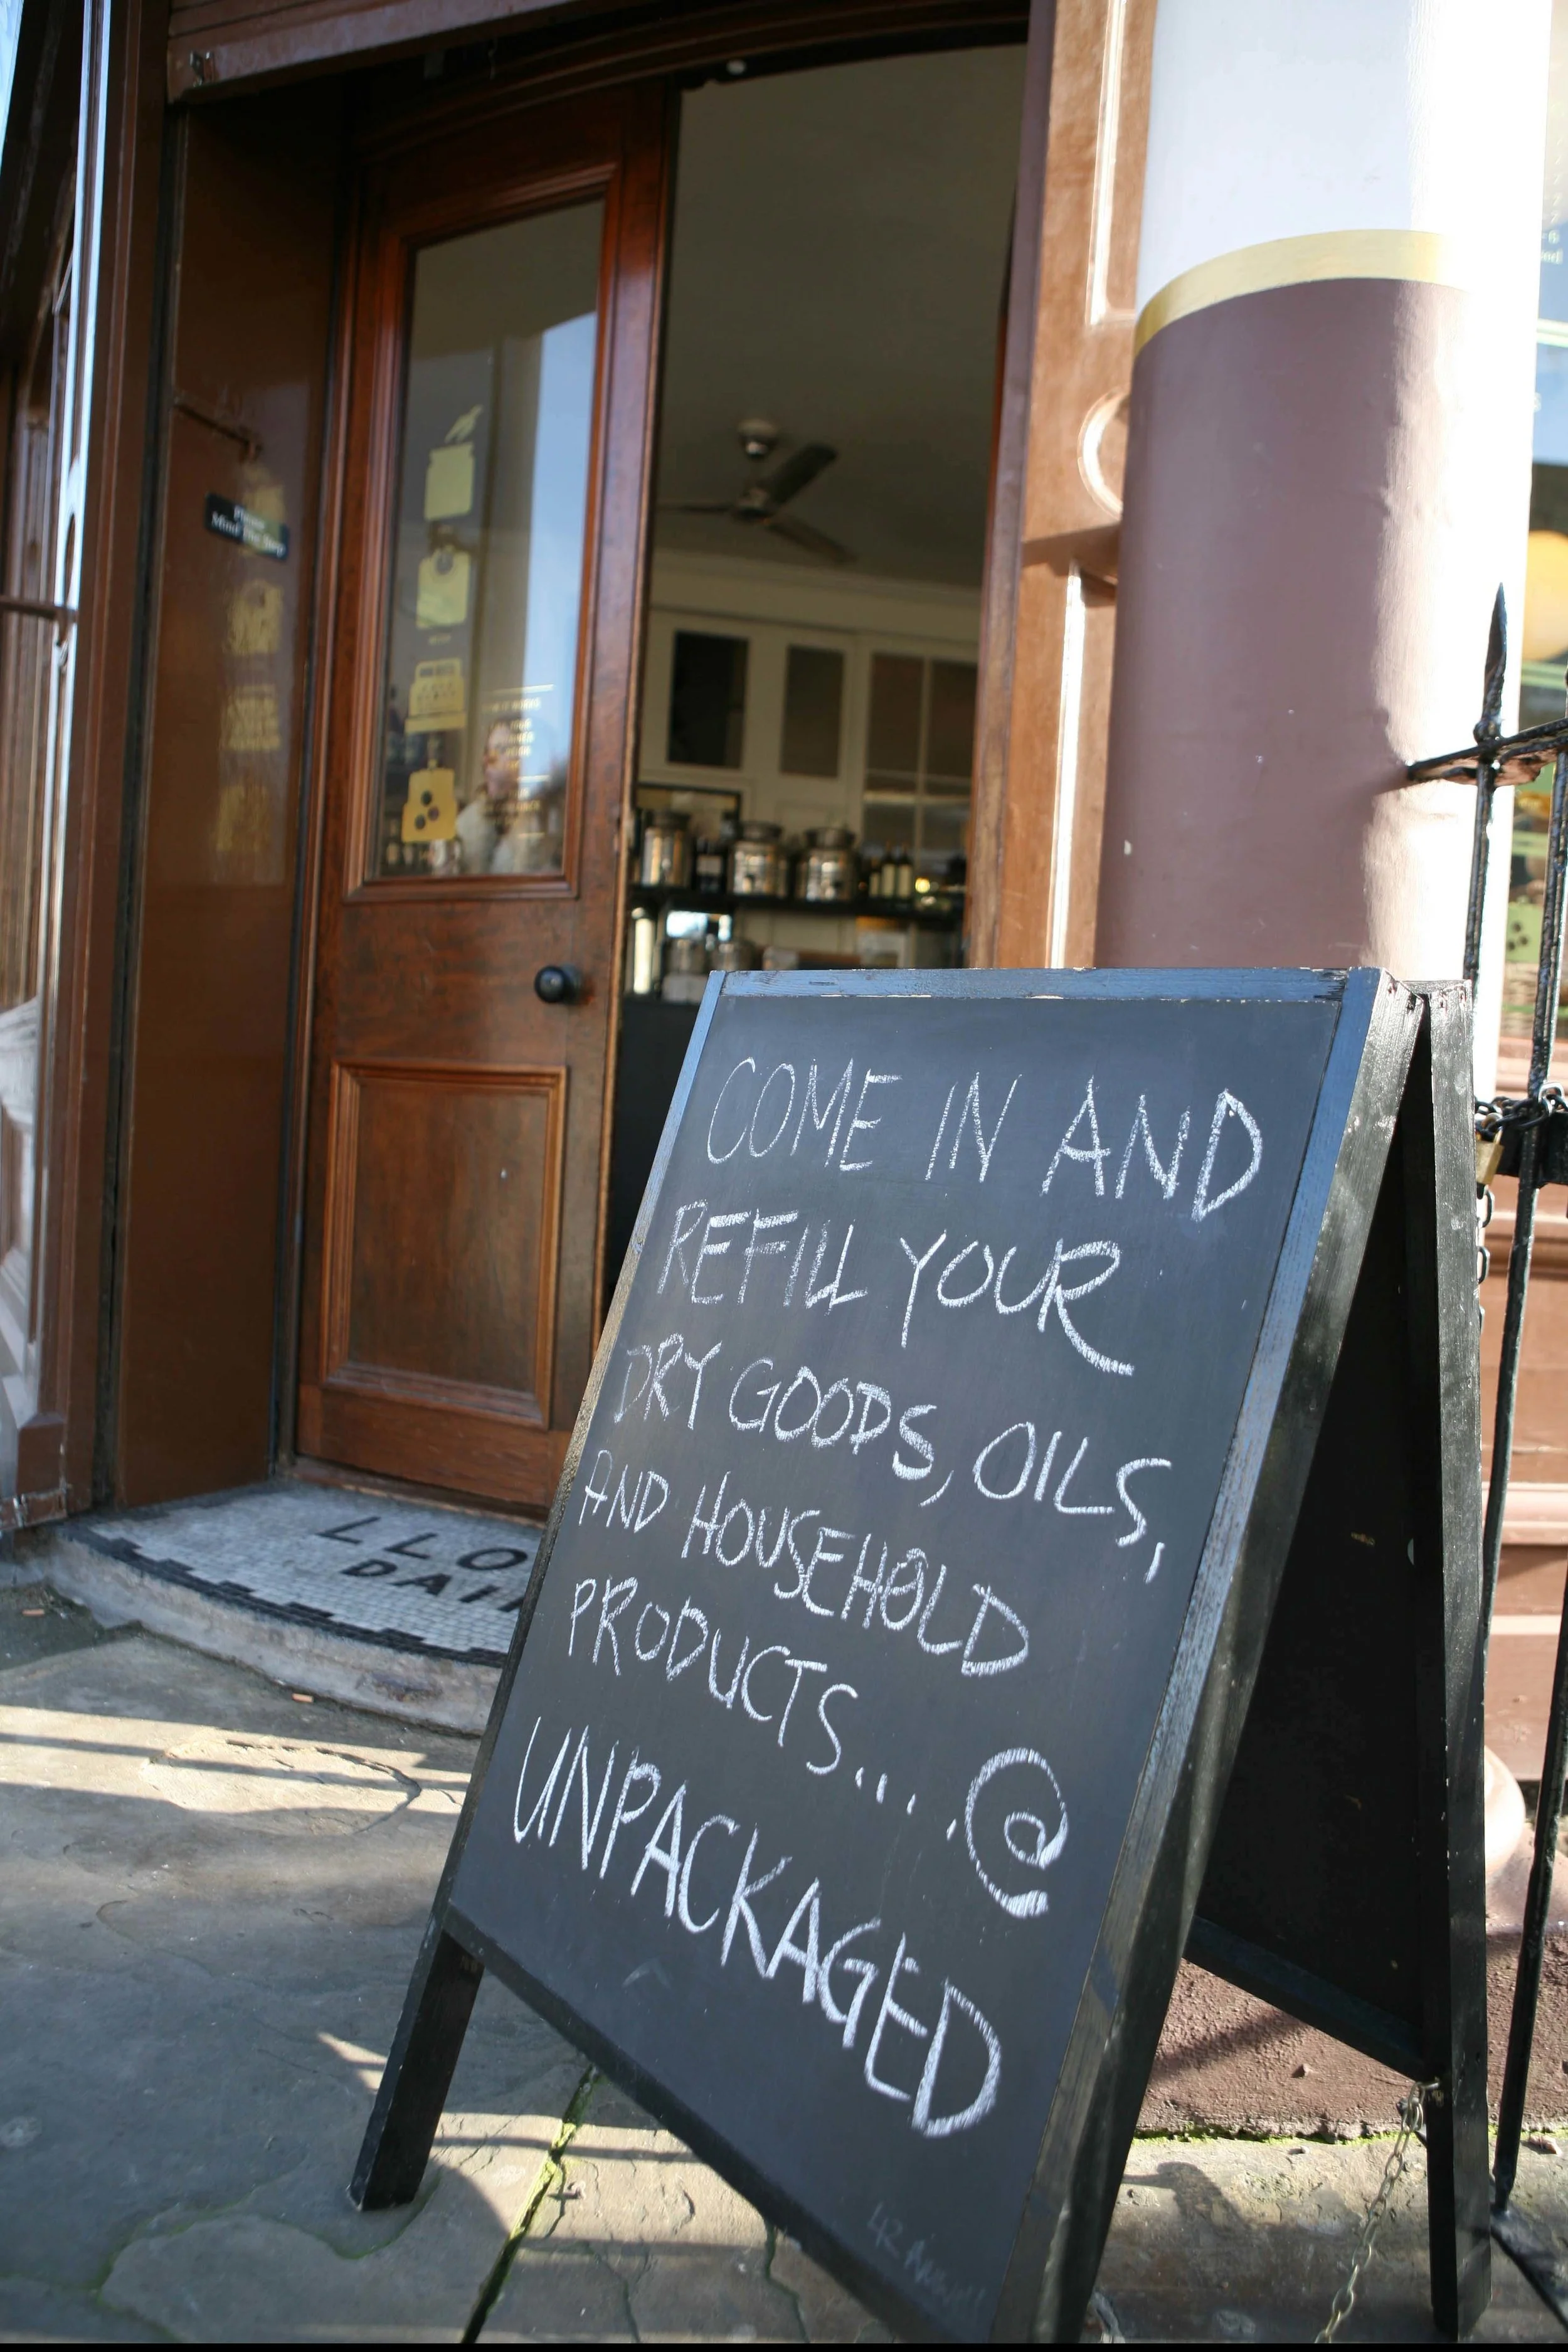 Please
Mind The Step
LLO
DAI
COME IN AND
REFILL YOUR
DRY GOODS, OILS,
AND HOUSEHOLD
PRODUCTS... @
UNPACKAGED